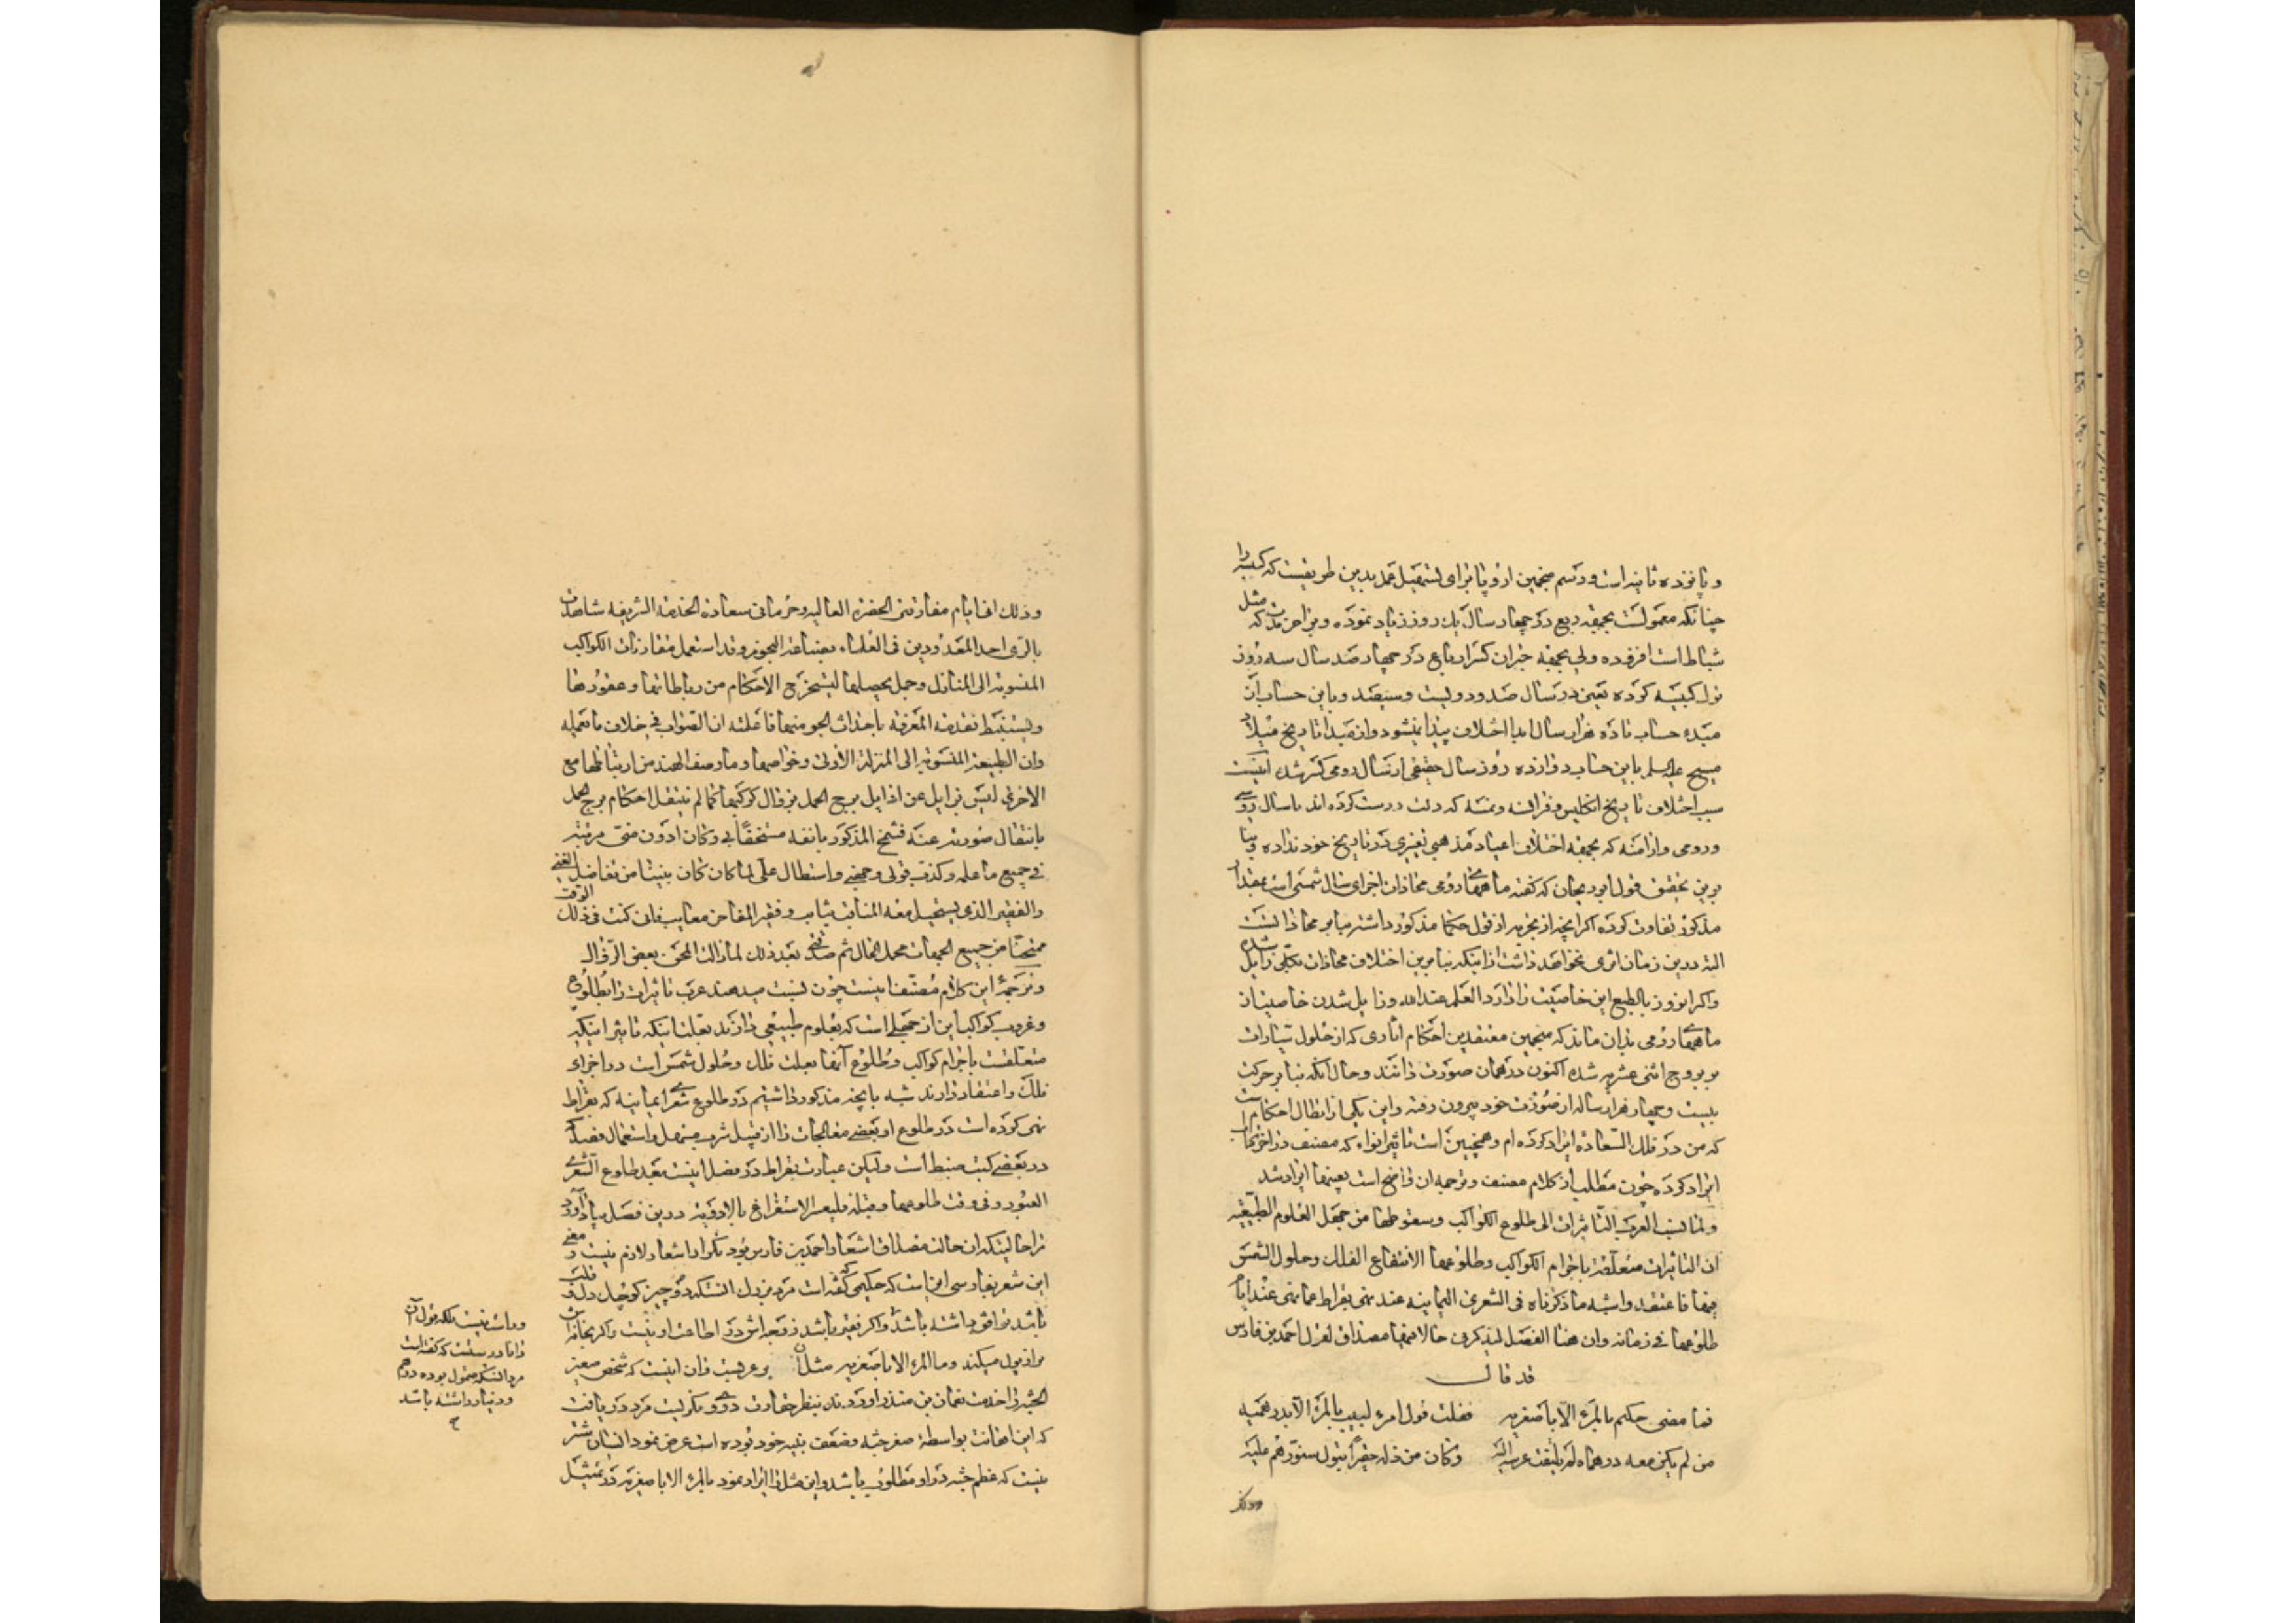 و پانزده ثانیه است و رسم منجمین اروپا برای تسهیل عمل بدین طریقست که کبیسه را
چنانکه معمولست بجهة ربع در چهار سال یک روز زیاد نموده و بر آخر
شباط است افزوده ولی بجهة جبران کسر ارباع در چهار صد سال سه روز
ترک کبیسه کرده یعنی در سال صد و دویست و سیصد و باین حساب آن
مبدء حساب تا ده هزار سال ابدا اختلاف پیدا نمیشود و از مبدا تاریخ میلاد
مسیح علیه السلم باین حساب دوازده روز سال حقیقی از سال رومی کمتر شده اینست
سبب اختلاف تاریخ انگلیس و فرانسه و نمسه که درست کرده اند با سال روسی
و رومی و ارامنه که بجهة اختلاف اعیاد مذهبی تغییری در تاریخ خود نداده و بنا
برین تحقیق قول ابوریحان که گفته ماههای رومی محاذات اجزای سال شمسی است بمقدار
مذکور تفاوت کرده اگر آنچه از تجربه از قول حکما مذکور داشته بنا بر محاذا تست
البته درین زمان اثری نخواهد داشت از اینکه بنا برین اختلاف محاذات بکلی زایل شده
و اگر امروز بالطبع این خاصیت را دارد العلم عند الله و زایل شدن خاصیت از
ماههای رومی بدان ماند که منجمین معتقدین احکام آثاری که از حلول سیارات
بر بروج اثنی عشریه شده اکنون در همان صورت دانند و حال آنکه بنا بر حرکت
بیست و چهار هزار ساله از صورت خود بیرون رفته و این یکی از ابطال احکام است
که من در فلک السعاده ایراد کرده ام و همچنین است تاثیر انواء که مصنف در آخر
ایراد کرده چون مطلب از کلام مصنف و ترجمه ان واضح است بعینها ایراد شد
ولما نسب العرب التأثیرات الی طلوع الکواکب و سقوطها من جهل العلوم الطبیعیه
ان التاثیرات متعلقة باجرام الکواکب و طلوعها لا انتفاع الفلک و حلول الشمس
فیها فاعتقد و اشبه ما ذکرناه فی الشعری الیمانیه عند نهی بقراط عما نهی عند ایام
طلوعها فی زمانه وان هذا الفصل لیذکرنی حالا فیها مصداق لقول احمد بن فارس
قد قال
فیما مضی حکیم ما المرء الا باصغریه    فقلت قول امرء لبیب ما المرء الا بدرهمیه
من لم یکن معه درهماه لم یلتفت عرسه الیه    وکان من ذله حقیرا یبول سنورهم علیه
وذلک
وذلک ان ایام مفارقتی الحضرة العالیه و حرمانی سعادة الخدمة الشریفه شاهدت
بالری احد المعدودین فی العلماء بصناعة النجوم وقد استعمل مقارنات الکواکب
المنسوبة الی المنازل وجعل یحصلها لیستخرج الاحکام من رباطاتها وعقودها
ویستنبط تقدمة المعرفة باحداث الجو منها فاعلمته ان الصواب فی خلاف ما تعمله
وان الطبیعة المنسوبة الی المنزلة الاولی وخواصها وما وصف الهند من ارتباطها مع
الاخری لیس بزایل عن اوایل برج الحمل بزوال کوکبها کما لم ینتقل احکام برج الحمل
بانتقال صورته عنه فشمخ المذکور بانفه مستخفا بی وکان ادون منی مرتبة
فی جمیع ما علمه وکذب قولی و جبهنی واستطال علی لما کان بیننا من تفاضل الغنی
والفقیر الذی یستحیل معه المناقب مثالب و تصیر المفاخر معایب فانی کنت فی ذلک الوقت
ممتحنا من جمیع الجهات مختل الحال ثم صدقنی بعد ذلک لما زالت المحن بعض الزوال
و ترجمهٔ این کلام مصنف اینست چون نسبت میدهند عرب تاثیرات را بطلوع
و غروب کواکب این از جهلی است که بعلوم طبیعی دارند بعلت اینکه تاثیر اینکه
متعلقست باجرام کواکب و طلوع آنها بعلت فلک و حلول شمس است در اجزای
فلک و اعتقاد دارند شبه بانچه مذکور داشتیم در طلوع شعرای یمانیه که بقراط
نهی کرده است در طلوع او بعضی معالجات را از قبیل شرب مسهل و استعمال فصد که
در بعضی کتب ضبط است ولیکن عبارت بقراط در فصل اینست بعد طلوع الشعری
العبور و فی وقت طلوعها و قبله فلیعسر الاستفراغ بالادویة و درین فصل بیاد آورد
مرا حالیتکه ان حالت مصداق اشعار احمد بن فارس بود تکرار اشعار لازم نیست و معنی
این شعر بفارسی این است که حکیمی گفته است مرد بزرک انستکه دو چیز کوچک دل و قلب
باشد موافق داشته باشد و اگر فقیر باشد زوجه اش در اطاعت او نیست و گربه خانه اش
بر او بول میکند و ما المرء الا باصغریه مثل عربیست و ان اینست که شخص صغیر
الجثه را خدمت نعمان بن منذر اوردند بنظر حقارت در وی نگریست مرد دریافت
که این اهانت بواسطهٔ صغر جثه و ضعف بنیه خود بوده است عرض نمود انسان شتر
نیست که عظم جثه در او مطلوب باشد و این مثل را ایراد نمود ما المرء الا باصغریه در تمثیل
و راست نیست بلکه قول آن
دانا درستست که گفته است
مرد انستکه متمول بوده درهم
و دینار داشته باشد